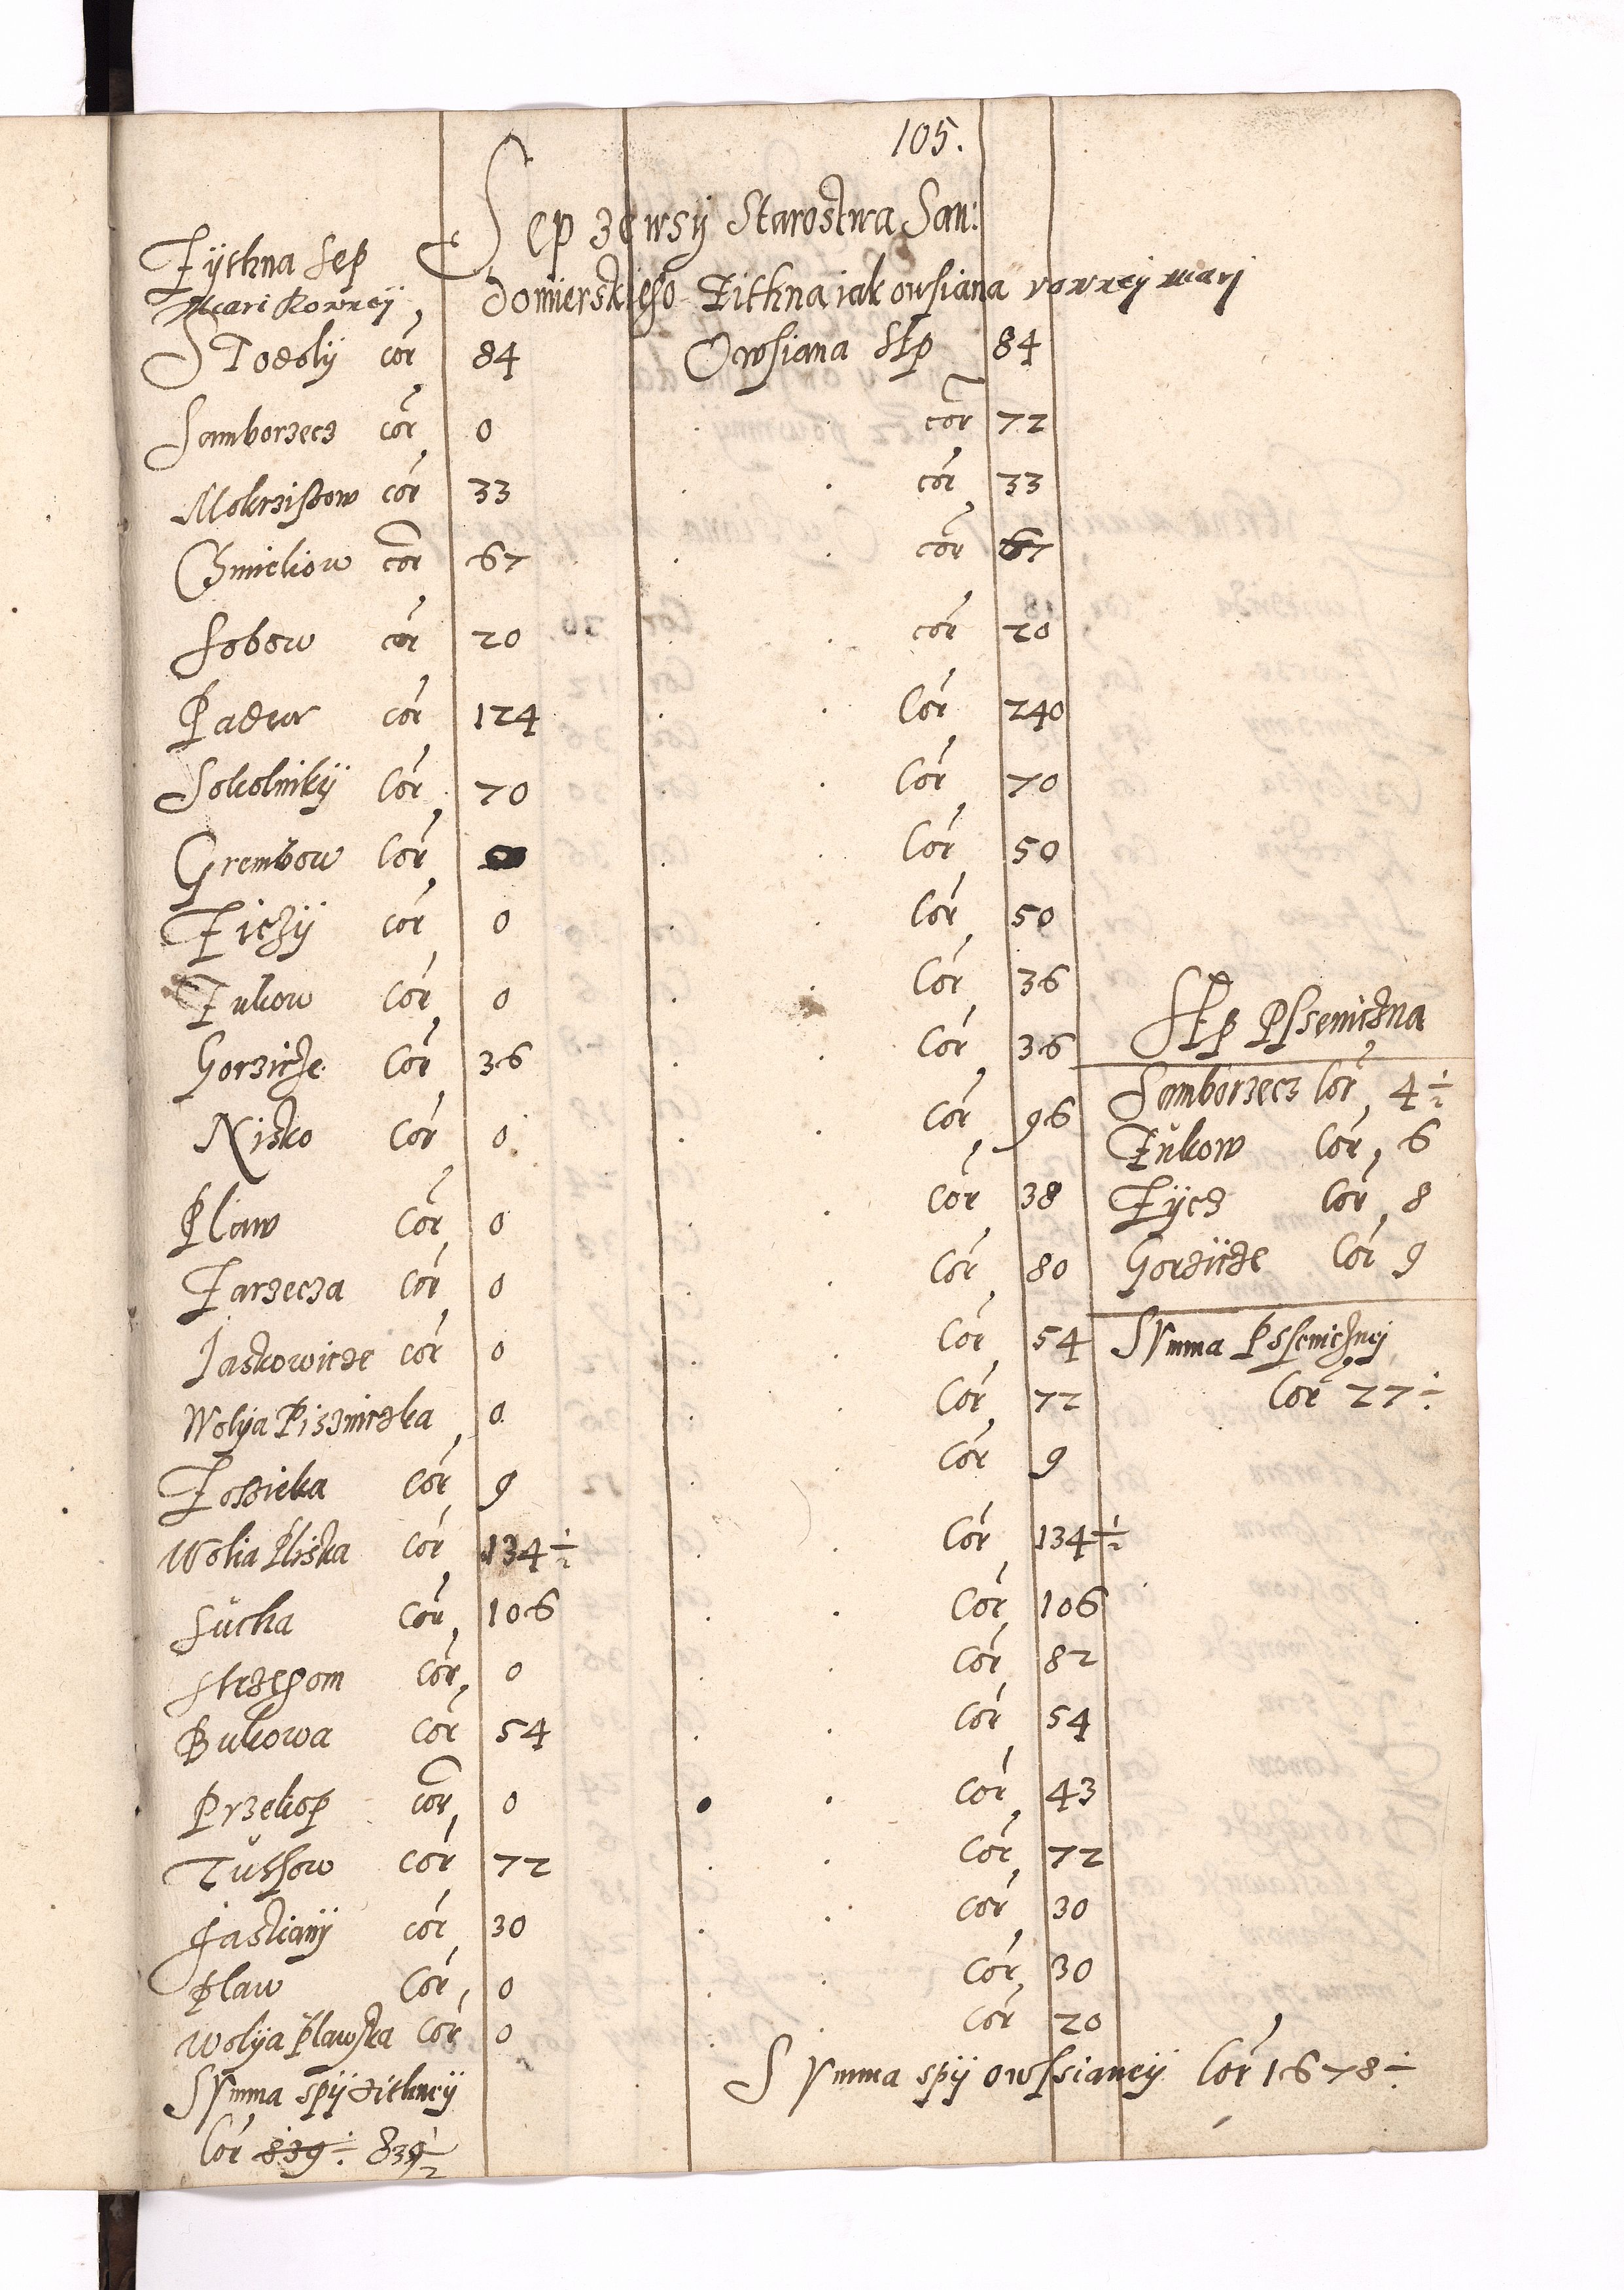 105.
Sep zewsÿ Starostwa San:
domierskiego Zitkna iak owsiana rownej miarÿ
Zÿthna Sep
miari Rownej
Owsiana Sęp
STodolÿ cor 84 84
Samborzecz cor 0 cor 72
Mokrzissow cor 33 cor 33
Czmiekow cor 67 cor 67
Sobow cor 20 cor 20
Padew cor 124 Cor 240
Sokolnikÿ Cor 70 Cor 70
Grembow Cor Cor 50
Ziczÿ cor 0 Cor 50
Zukow Cor 0 Cor 36
Gorzicze Cor 36 Cor 36
Nisko Cor 0 Cor 96
Plaw Cor 0 Cor 38
Zarzecza Cor 0 Cor 80
Jaskowicze Cor 0 Cor 54
Wolÿa Piszniczka 0 Cor 72
Zossicka Cor 9 Cor 9
Wolia Pliska Cor 134 ½ Cor 134 ½
Sucha Cor 106 Cor 106
Strzegom Cor 0 Cor 82
Bukowa Cor 54 Cor 54
Przekop cor 0 Cor 43
Tussow Cor 72 Cor 72
Jaslianÿ cor 30 cor 30
Plaw Cor 0 Cor 30
Wolÿa Plawska Cor 0 Cor 20
SVmma spÿ zithneÿ
Cor 839 ÷ 839 ½
SVmma spÿ owssianeÿ Cor 1678 ÷
Sęp Psseniczna
Samborzecz Cor 4 ½
Zukow Cor 6
Zÿcz Cor 8
Gorzÿcze Cor 9
SVmma Pssenicznej
Cor 27 ÷